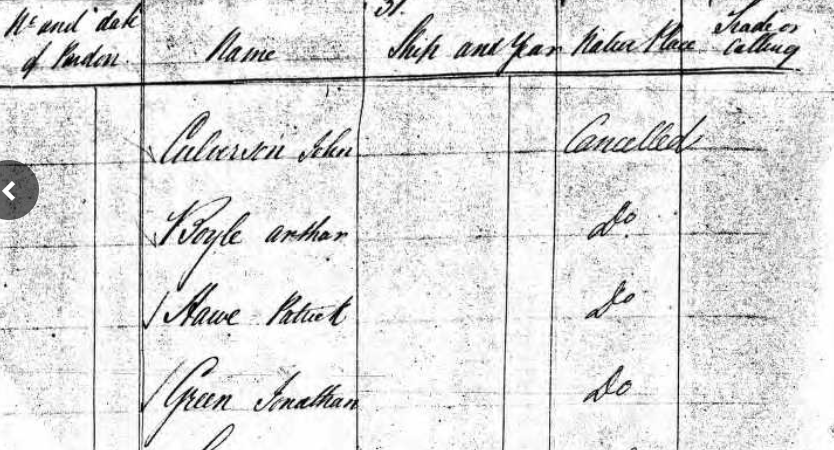 31.
No and date of Pardon
Name
Ship and Year
Native Place
Trade or Calling
Culverson John Cancelled
Boyle arthur Do
Hawe Patrick Do
Green Jonathan Do